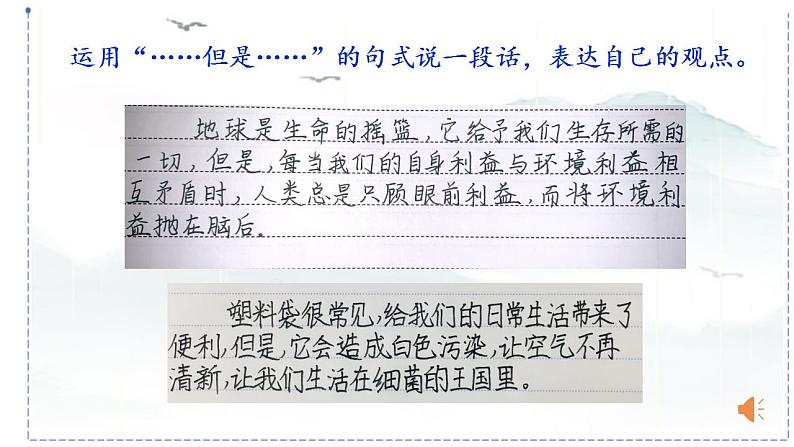 运用“……但是……”的句式说一段话，表达自己的观点。
地球是生命的摇篮，它给予我们生存所需的
一切，但是，每当我们的自身利益与环境利益相
互矛盾时，人类总是只顾眼前利益，而将环境利
益抛在脑后。
塑料袋很常见，给我们的日常生活带来了
便利，但是，它会造成白色污染，让空气不再
清新，让我们生活在细菌的王国里。